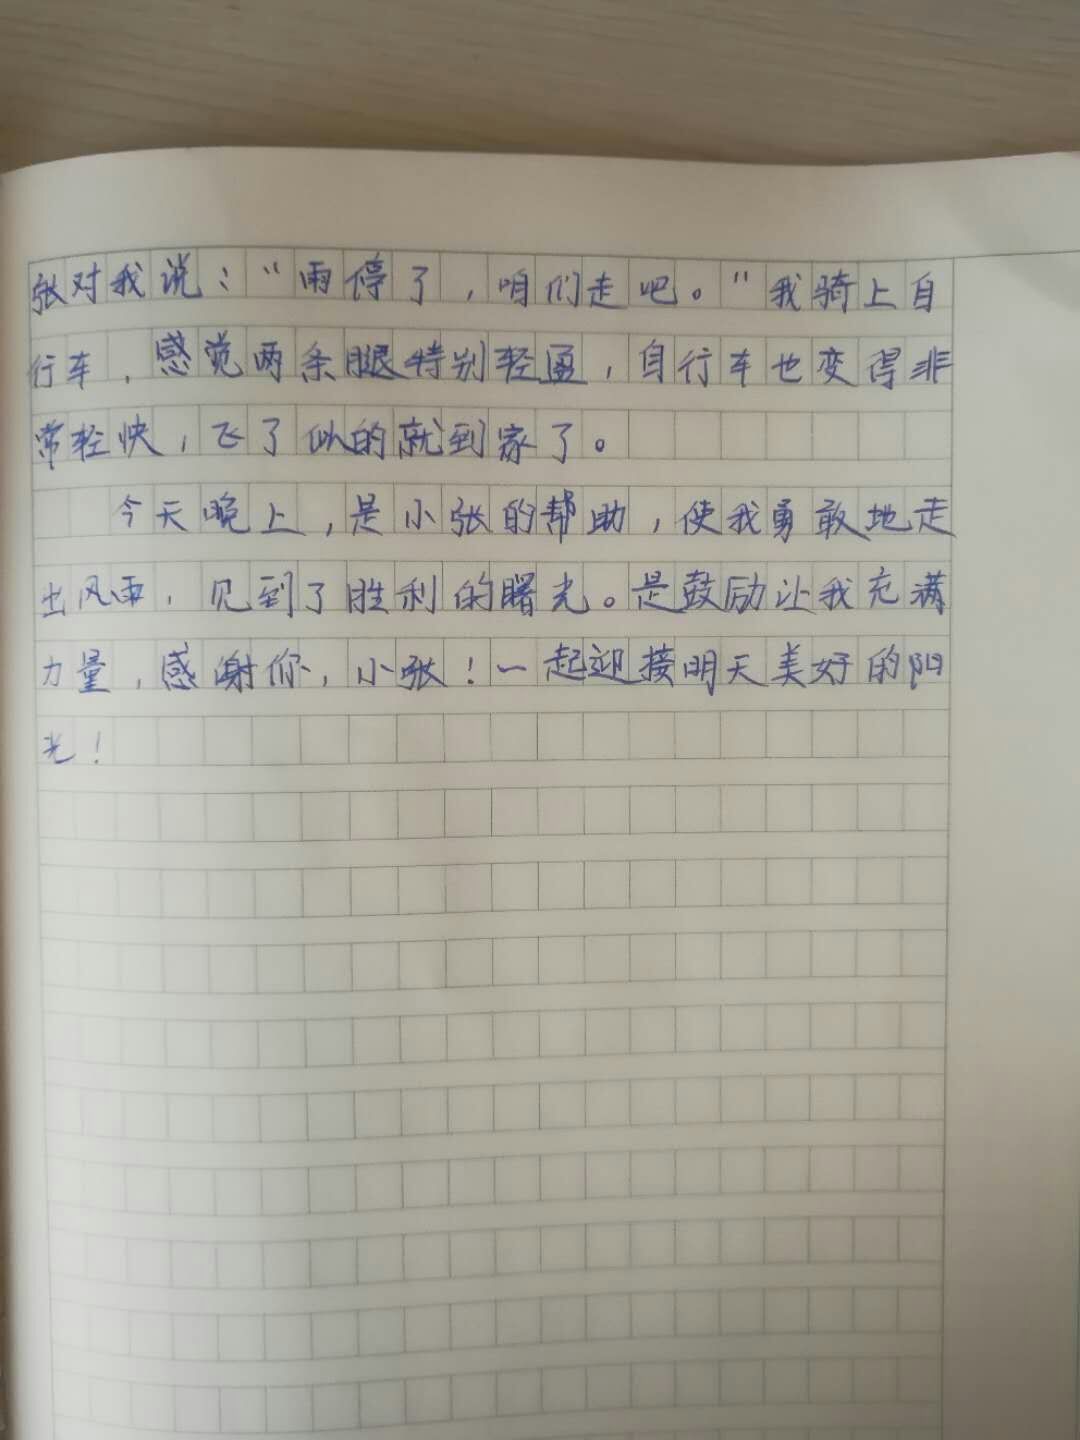 张对我说：“雨停了，咱们走吧。”我骑上自
行车，感觉两条腿特别轻盈，自行车也变得非
常轻快，飞了似的就到家了。
今天晚上，是小张的帮助，使我勇敢地走
出风雨，见到了胜利的曙光。是鼓励让我充满
力量，感谢你，小张！一起迎接明天美好的阳
光！